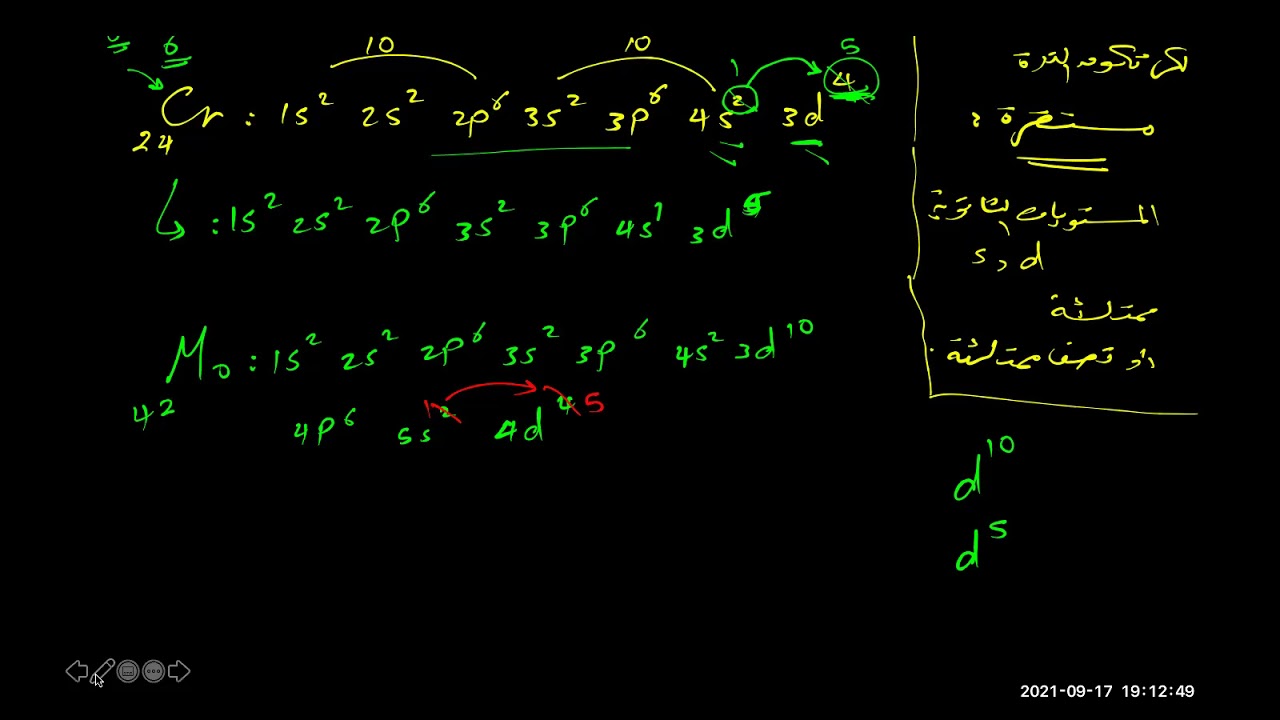 6
10 10 1 5
₂₄Cr : 1s² 2s² 2p⁶ 3s² 3p⁶ 4s² 3d⁴
: 1s² 2s² 2p⁶ 3s² 3p⁶ 4s¹ 3d⁵
₄₂Mo : 1s² 2s² 2p⁶ 3s² 3p⁶ 4s² 3d¹⁰
4p⁶ 5s² 1 4d⁴ 5
لكي تكون الذرة
مستقرة :
المستويات الثانوية
s , d
ممتلئة
او نصف ممتلئة .
d¹⁰
d⁵
2021-09-17 19:12:49